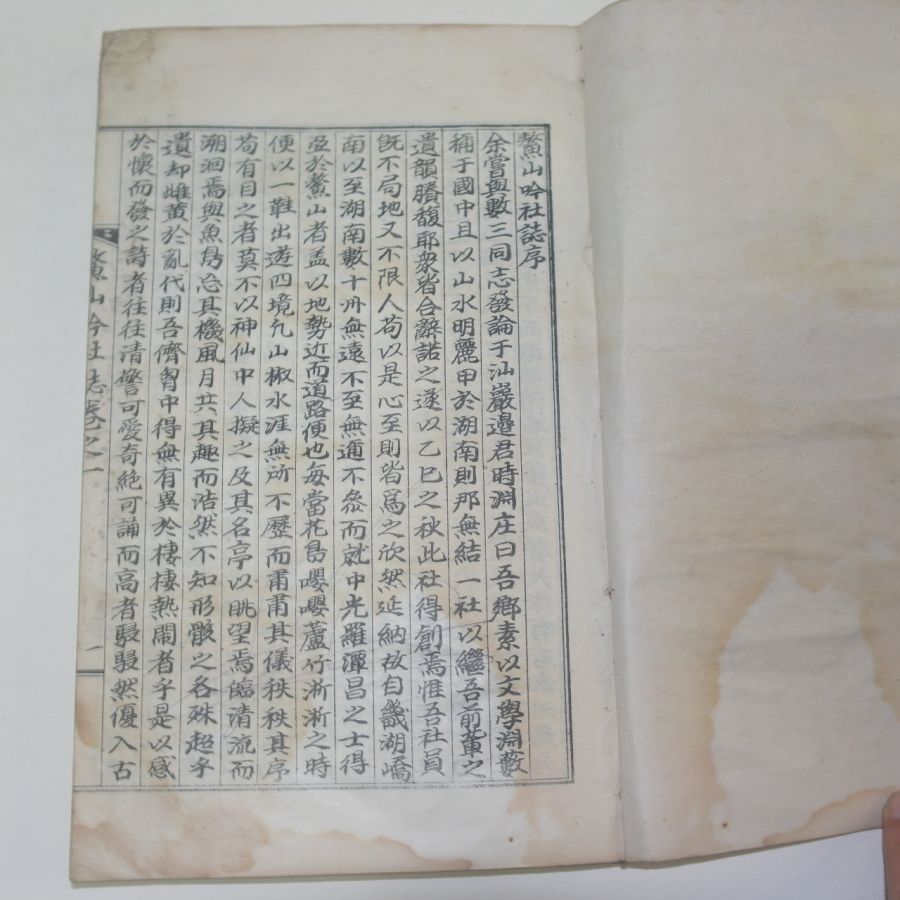 鰲山吟社誌序
余嘗與數三同志發論于汕巖邉君時淵庄曰吾鄉素以文學淵藪
稱于國中且以山水明麗甲於湖南則那無結一社以繼吾前軰之
遺韻賸馥耶衆皆合辭諾之遂以乙巳之秋此社得創焉惟吾社員
旣不局地又不限人苟以是心至則皆爲之欣然延納故自畿湖嶠
南以至湖南數十州無遠不至無邇不叅而就中光羅潭昌之士得
並於鰲山者盖以地勢近而道路便也每當花島嚶嚶蘆竹淅淅之時
便以一鞋出遊四境凢山椒水涯無所不歷而甫甫其儀秩秩其序
苟有目之者莫不以神仙中人擬之及其名亭以眺望焉臨清流而
溯洄焉與魚鳥忘其機風月共其趣而浩然不知形骸之各殊超乎
遺却雌黄於亂代則吾儕胷中得無有異於棲棲熱閙者乎是以感
於懷而發之詩者往往清警可愛奇絶可誦而高者駸駸然優入古
鰲山吟社誌卷之一
一